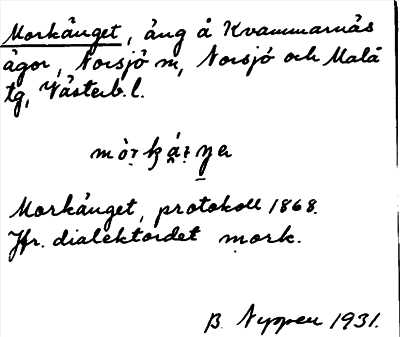 Morkänget, äng å Kvammarnäs
ägor, Norsjö m, Norsjö och Malå
tg, Västerb. l.
Morkänget, protokoll 1868.
Jfr. dialektordet mork.
B. Nyppen 1931.